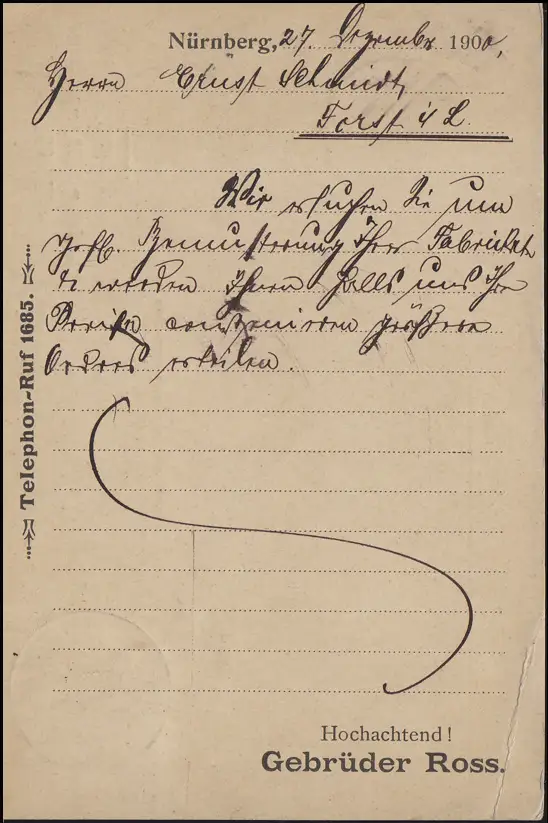 Nürnberg, 27. Dezember 1900.
Herrn Ernst Schmidt,
Forst i/L.
Wir ersuchen Sie um
gefl. Bemusterung Ihrer Fabrikate
& werden Ihnen falls uns Ihre
Preise convenieren größere
Ordres erteilen.
Telephon-Ruf 1685.
Hochachtend!
Gebrüder Ross.